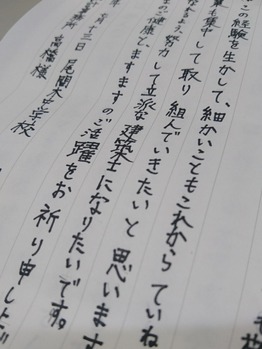 この経験を生かして、細かいこともこれからていね
も集中して取り組んでいきたいと思います
努力して立派な建築士になりたいです。
のご健康と、ますますのご活躍をお祈り申し上げ
月十二日 尾間木中学校
務所 高橋様